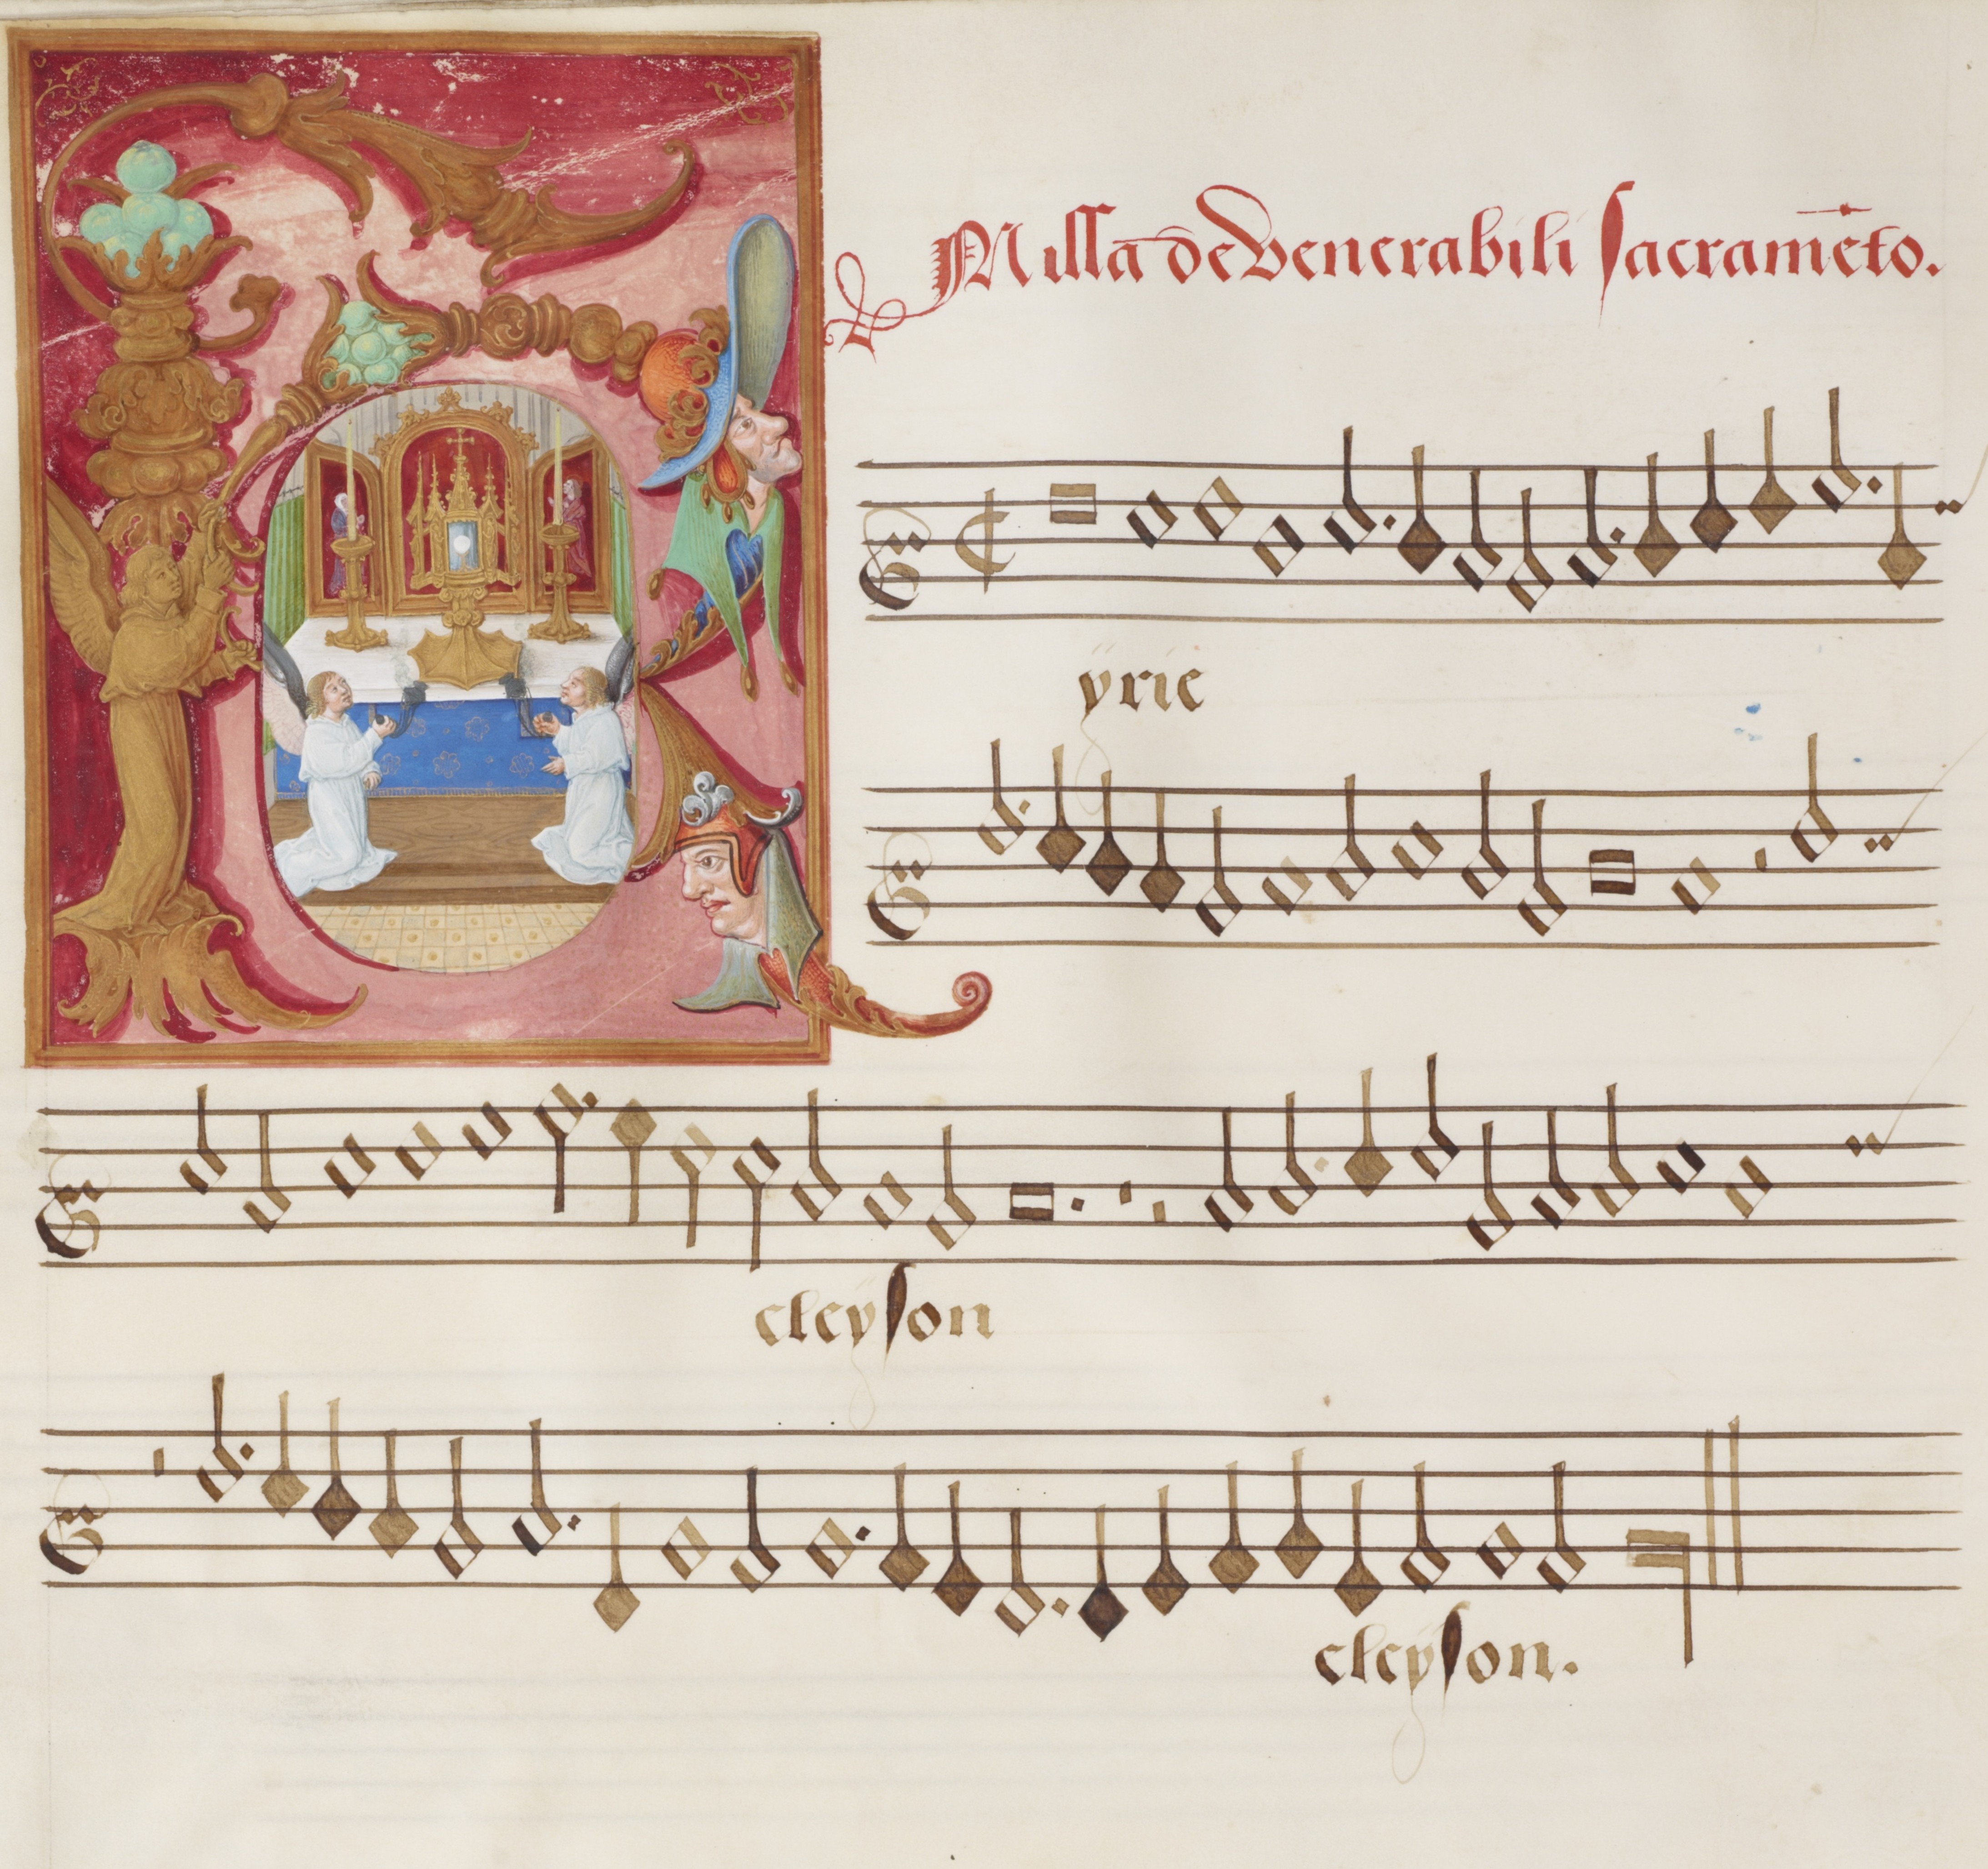 Missa de Venerabili sacramēto.
yrie
eleyson
eleyson.